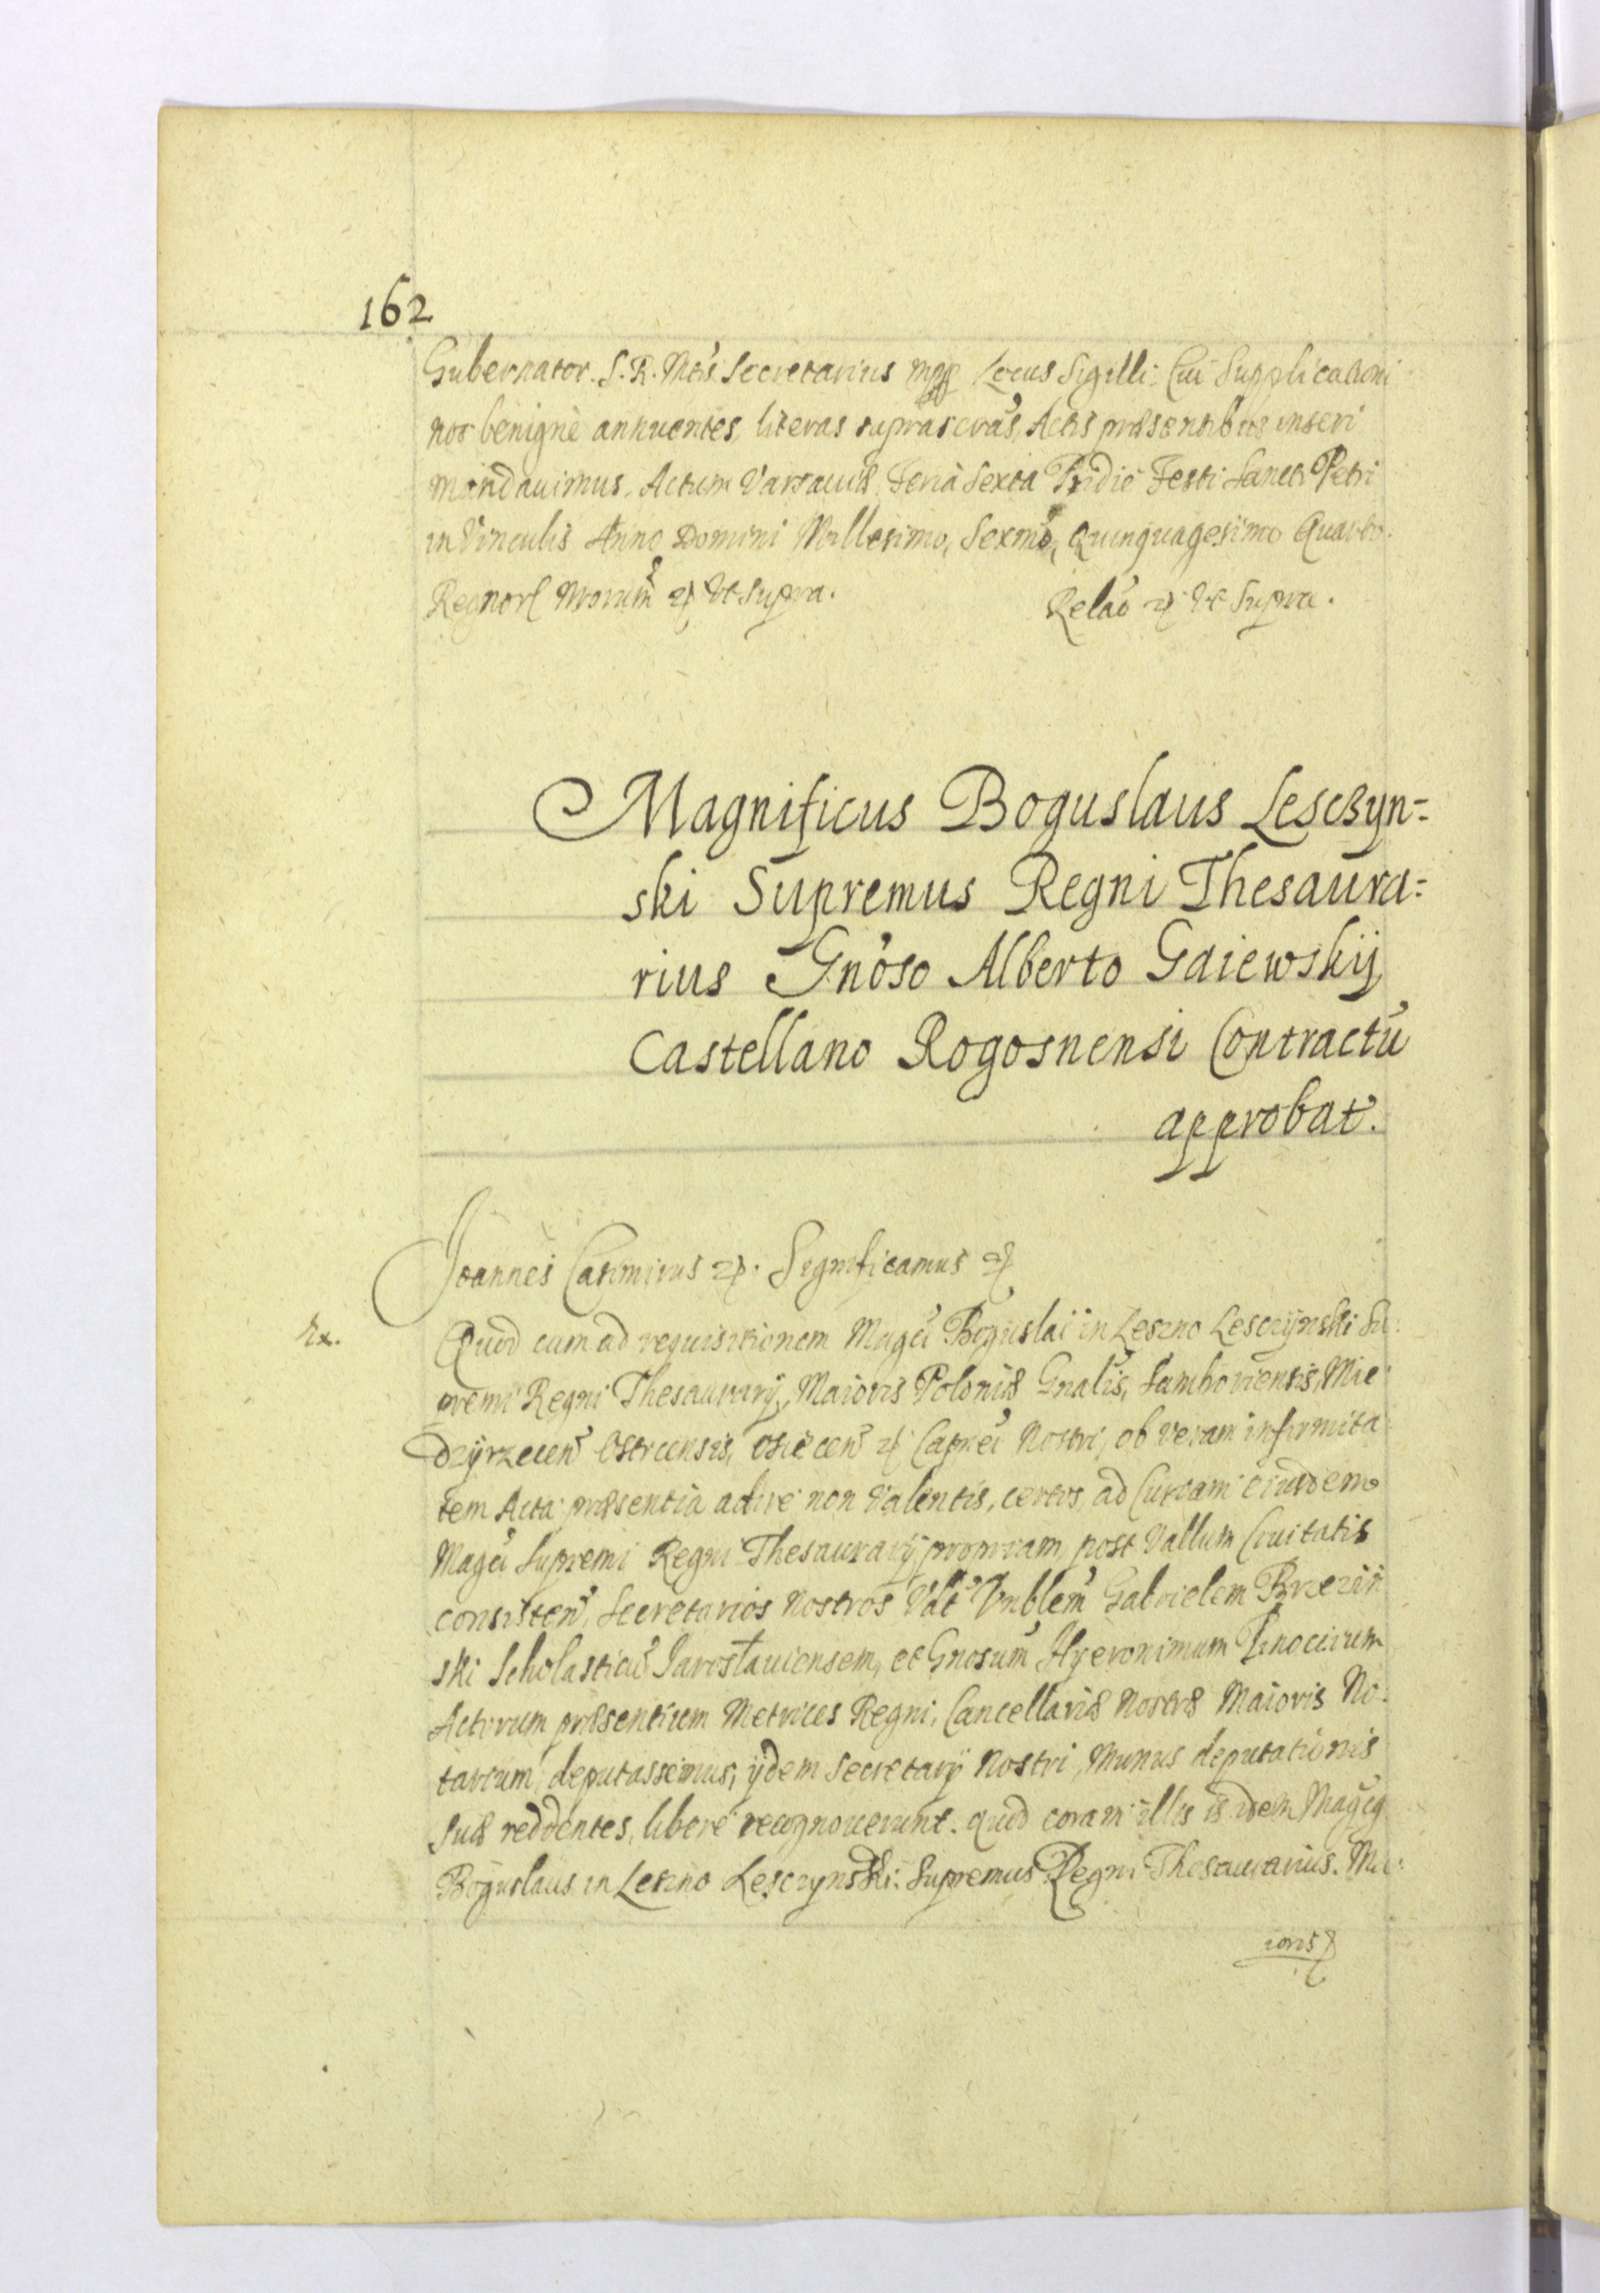 162
Gubernator. S. R. Mtis Secretarius mpp Locus Sigilli: Cui Supplicationi
nos benigne annuentes, literas suprascras, Actis præsentibus inseri
mandauimus. Actum Varsauiæ Feria Sexta Pridie Festi Sancti Petri
in Vinculis Anno Domini Millesimo, Sexmo, Quinquagesimo Quarto.
Regnor Nrorum et Vt supra. Relao et Vt Supra.
Magnificus Boguslaus Lesczyn=
ski Supremus Regni Thesaura=
rius Gnoso Alberto Gaiewskij
Castellano Rogosnensi Contractu
approbat.
Joannes Casimirus et. Significamus et
Rx.
Quod cum ad requisitionem Magci Boguslai in Leszno Lesczÿnski Su:
premi Regni Thesaurarij, Maioris Poloniæ Gnalis, Samboriensis, Mie
dzÿrzecen Ostrcensis, Osiecen et Capnei Nostri, ob veram infirmita
tem Acta præsentia adire non valentis, certos, ad Curiam eiusdem
Magci Supremi Regni Thesaurarij propriam, post Vallum Ciuitatis
consisten, Secretarios Nostros Vnblem Gabrielem Brzeziń
ski Scholasticu Jarosłauiensem, et Gnosum Hyeronimum Pinocium
Actorum præsentium Metrices Regni, Cancellariæ Nostræ Maioris No:
tarium, deputassemus, ijdem Secretarij Nostri, Munus deputationis
suæ reddentes, libere recognouerunt. quod coram illis is idem Magcq
Boguslaus in Leszno Lesczynski: Supremus Regni Thesaurarius. Ma:
ioris